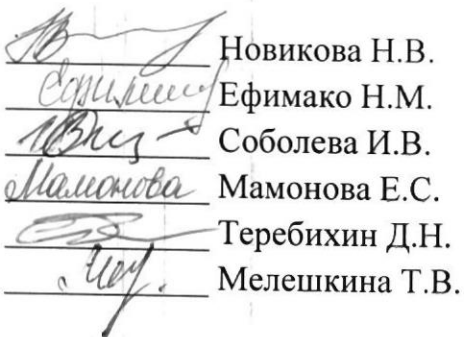 Новикова Н.В.
Ефимако Н.М.
Соболева И.В.
Мамонова Мамонова Е.С.
Теребихин Д.Н.
Мелешкина Т.В.